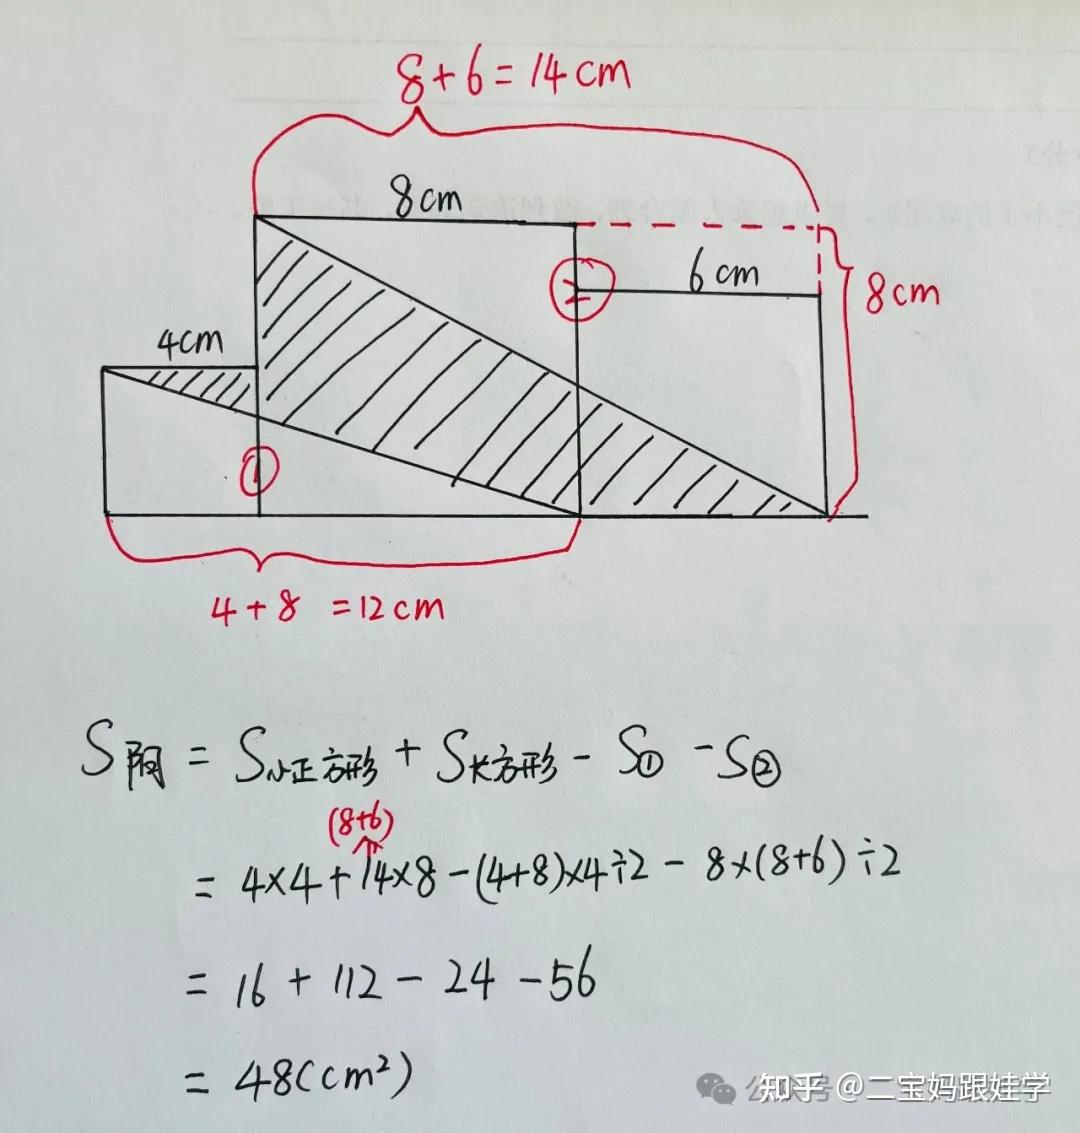 8+6=14cm
8cm
6cm
8cm
4cm
②
①
4+8 =12cm
S阴 = S小正方形 + S长方形 - S① - S②
(8+6)
= 4×4+14×8-(4+8)×4÷2- 8×(8+6)÷2
= 16 + 112 - 24 - 56
= 48(cm²)
知乎 @二宝妈跟娃学